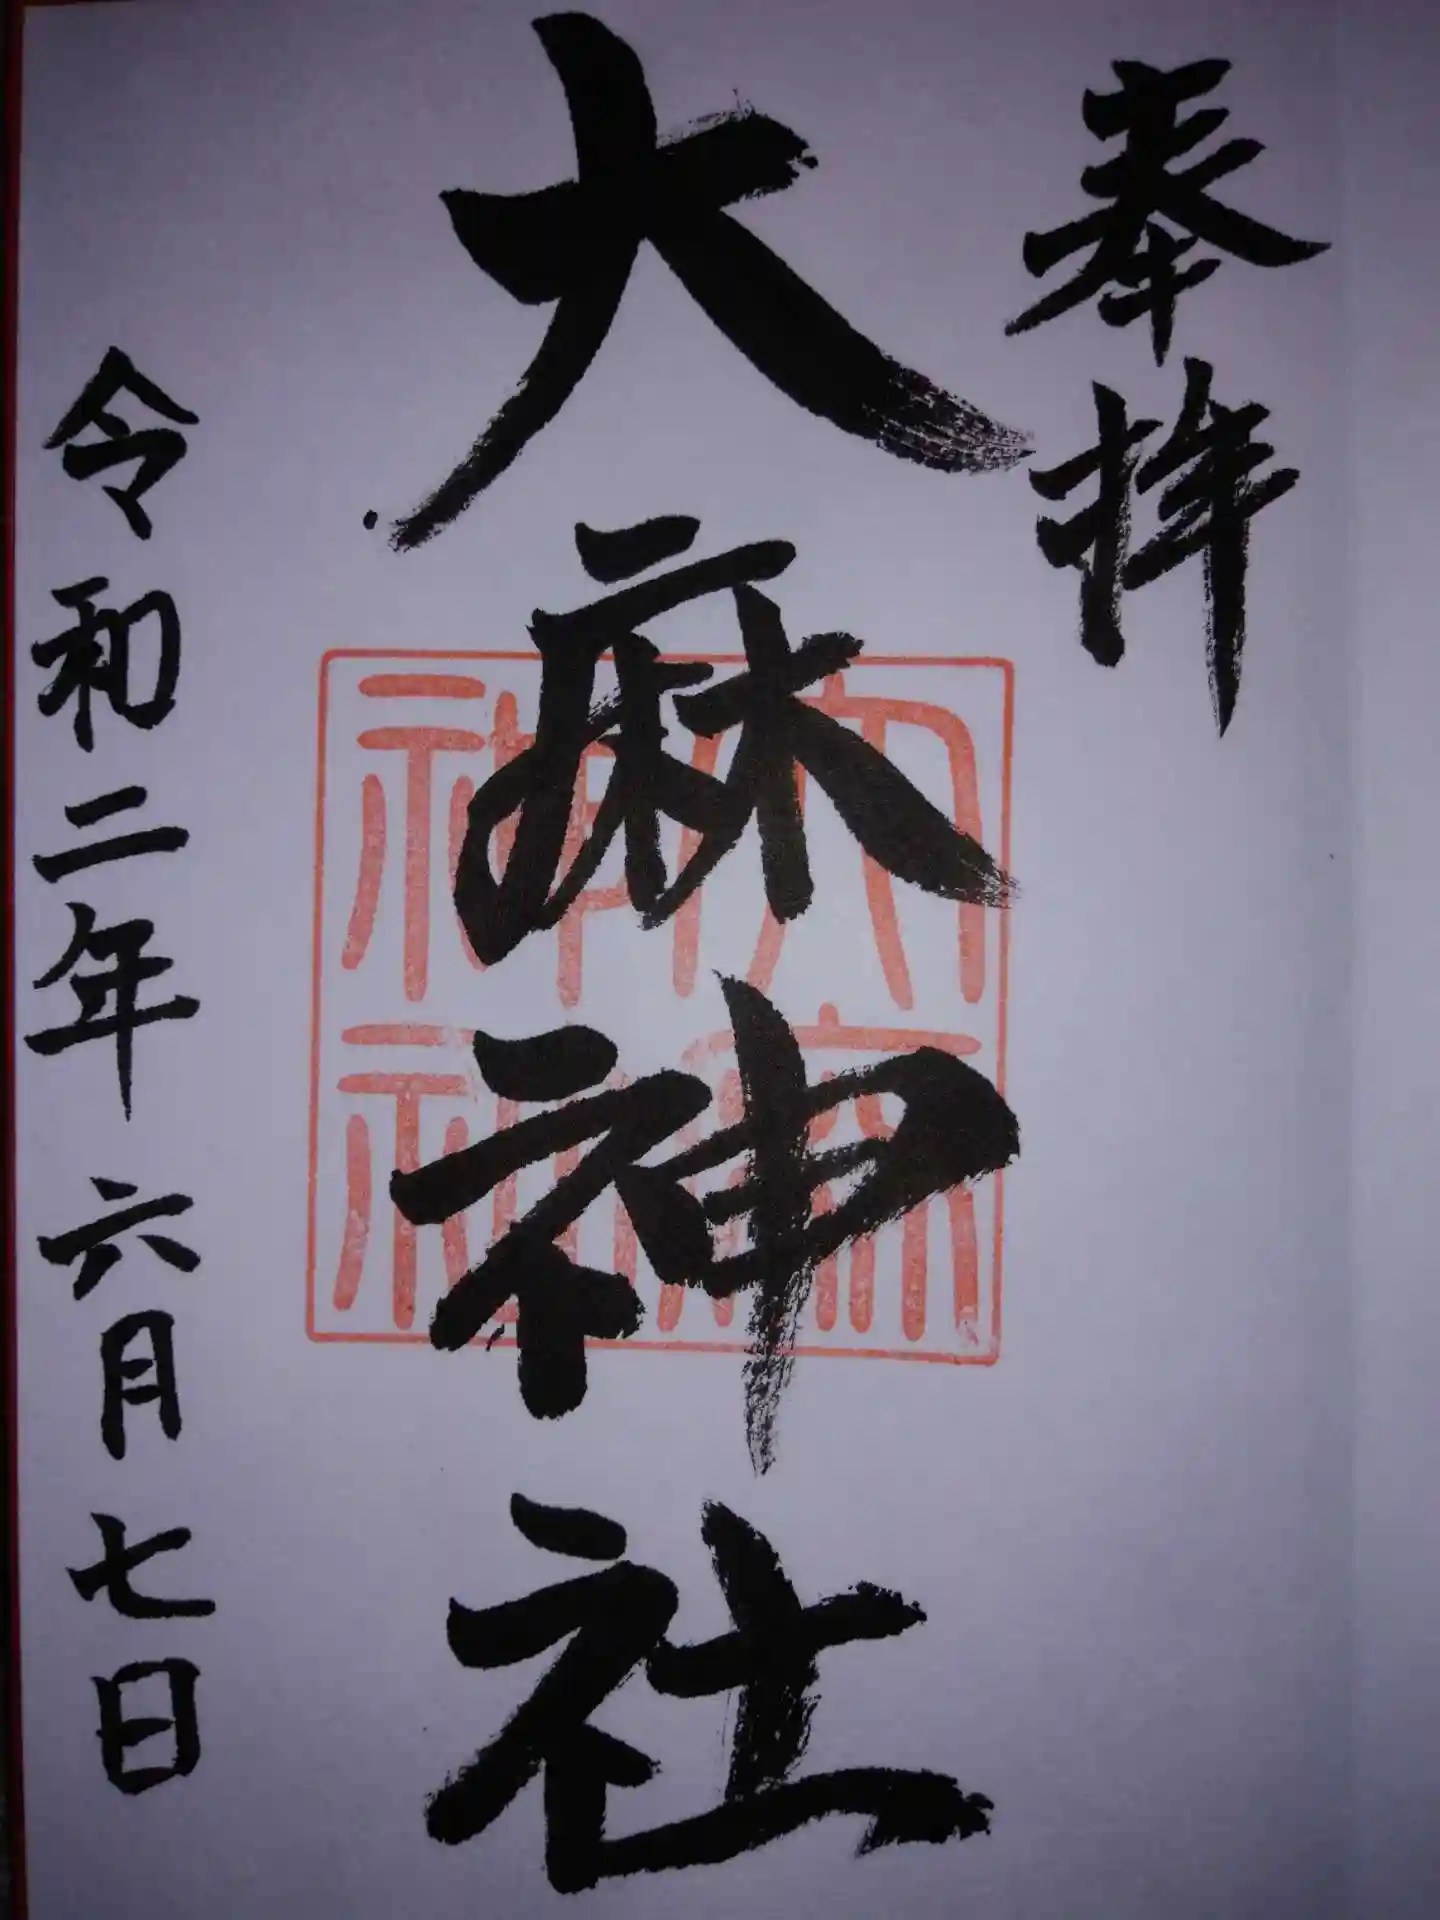 奉拝
大麻神社
大麻
神社
令和二年六月七日